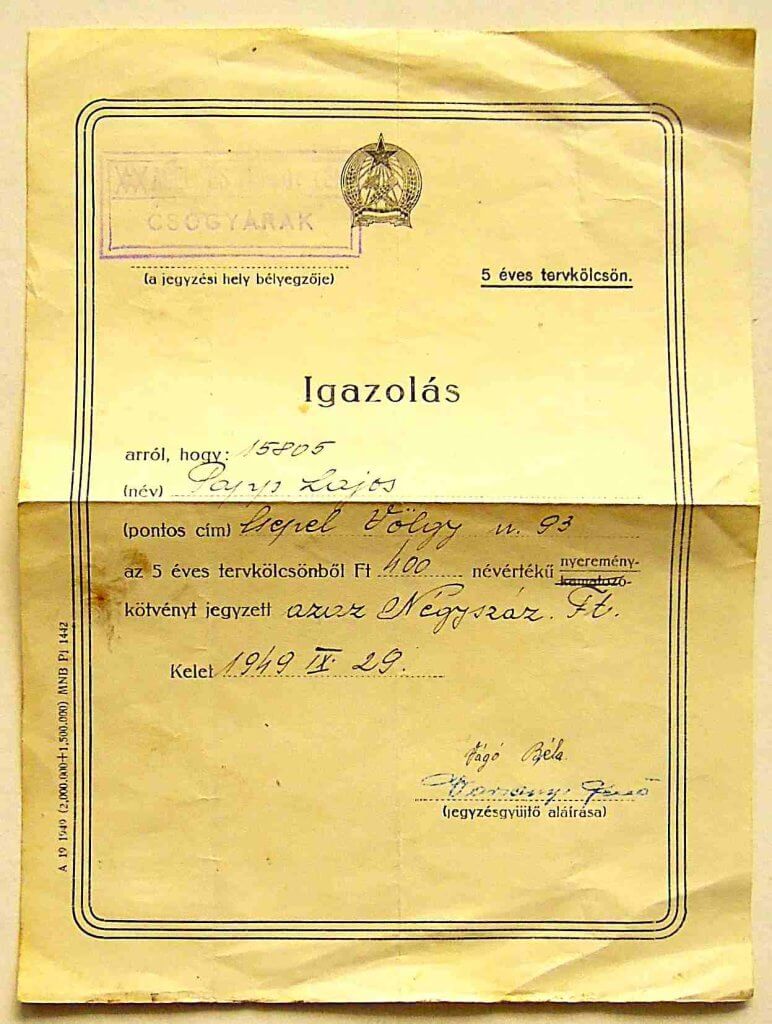 CSŐGYÁRAK
(a jegyzési hely bélyegzője)
5 éves tervkölcsön.
Igazolás
arról, hogy: 15805
(név) Papp Lajos
(pontos cím) Csepel Völgy u. 93
az 5 éves tervkölcsönből Ft 400 névértékű nyeremény-
kamatozó-
kötvényt jegyzett azaz Négyszáz. Ft.
Kelet 1949 IX. 29.
Vágó Béla
(jegyzésgyüjtő aláírása)
A 19 1949 (2,000.000+1,500.000) MNB PJ 1442